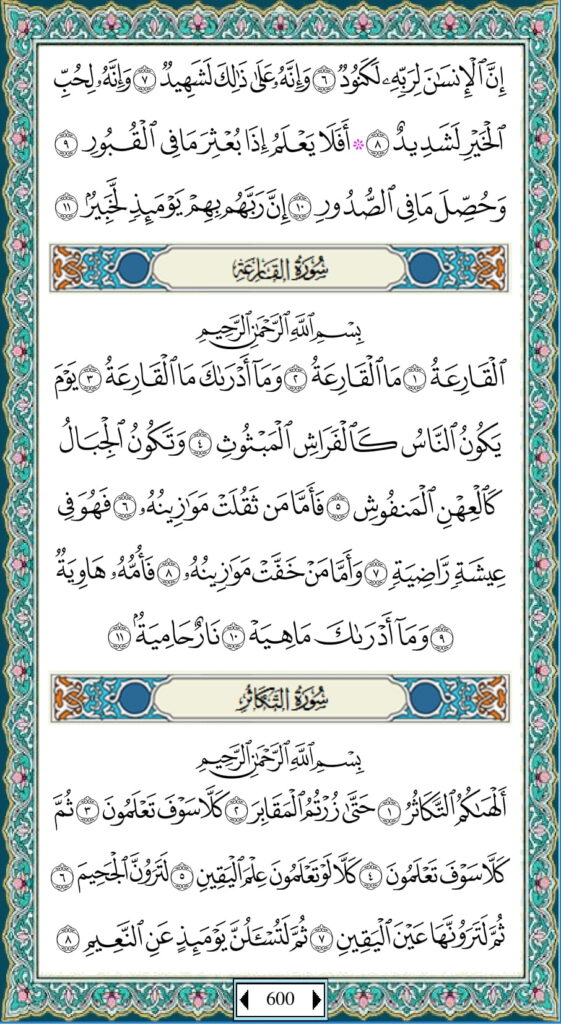 إِنَّ ٱلْإِنسَـٰنَ لِرَبِّهِۦ لَكَنُودٌ ٦ وَإِنَّهُۥ عَلَىٰ ذَٰلِكَ لَشَهِيدٌ ٧ وَإِنَّهُۥ لِحُبِّ
ٱلْخَيْرِ لَشَدِيدٌ ٨ ۞ أَفَلَا يَعْلَمُ إِذَا بُعْثِرَ مَا فِى ٱلْقُبُورِ ٩
وَحُصِّلَ مَا فِى ٱلصُّدُورِ ١٠ إِنَّ رَبَّهُم بِهِمْ يَوْمَئِذٍ لَّخَبِيرٌۢ ١١
سُورَةُ القَارِعَة
بِسْمِ ٱللَّهِ ٱلرَّحْمَـٰنِ ٱلرَّحِيمِ
ٱلْقَارِعَةُ ١ مَا ٱلْقَارِعَةُ ٢ وَمَآ أَدْرَىٰكَ مَا ٱلْقَارِعَةُ ٣ يَوْمَ
يَكُونُ ٱلنَّاسُ كَٱلْفَرَاشِ ٱلْمَبْثُوثِ ٤ وَتَكُونُ ٱلْجِبَالُ
كَٱلْعِهْنِ ٱلْمَنفُوشِ ٥ فَأَمَّا مَن ثَقُلَتْ مَوَٰزِينُهُۥ ٦ فَهُوَ فِى
عِيشَةٍ رَّاضِيَةٍ ٧ وَأَمَّا مَنْ خَفَّتْ مَوَٰزِينُهُۥ ٨ فَأُمُّهُۥ هَاوِيَةٌ
٩ وَمَآ أَدْرَىٰكَ مَا هِيَهْ ١٠ نَارٌ حَامِيَةٌۢ ١١
سُورَةُ التَّكَاثُر
بِسْمِ ٱللَّهِ ٱلرَّحْمَـٰنِ ٱلرَّحِيمِ
أَلْهَىٰكُمُ ٱلتَّكَاثُرُ ١ حَتَّىٰ زُرْتُمُ ٱلْمَقَابِرَ ٢ كَلَّا سَوْفَ تَعْلَمُونَ ٣ ثُمَّ
كَلَّا سَوْفَ تَعْلَمُونَ ٤ كَلَّا لَوْ تَعْلَمُونَ عِلْمَ ٱلْيَقِينِ ٥ لَتَرَوُنَّ ٱلْجَحِيمَ ٦
ثُمَّ لَتَرَوُنَّهَا عَيْنَ ٱلْيَقِينِ ٧ ثُمَّ لَتُسْـَٔلُنَّ يَوْمَئِذٍ عَنِ ٱلنَّعِيمِ ٨
600